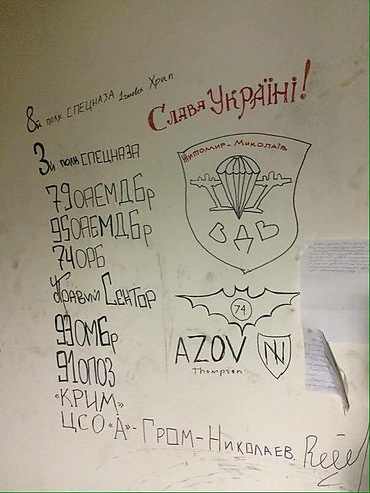 8й полк СПЕЦНАЗА Хрип
Слава УКРАЇНІ!
3й полк СПЕЦНАЗА
79ОАЕМДБр
95ОАЕМДБр
74ОРБ
Правий Сектор
93ОМБр
91ОПОЗ
«КРИМ»
ЦСО «А» - ГРОМ-НИКОЛАЕВ.
Житомир-Миколаїв
ВДВ
74
AZOV
Thompson